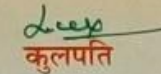 कुलपति